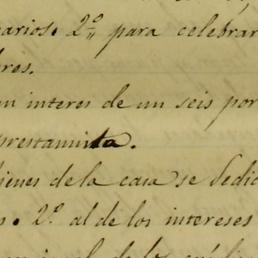 arios. 2º para celebrar
res.
n interes de un seis por
prestamista.
bienes de la casa se dedic
s. 2º. al de los intereses